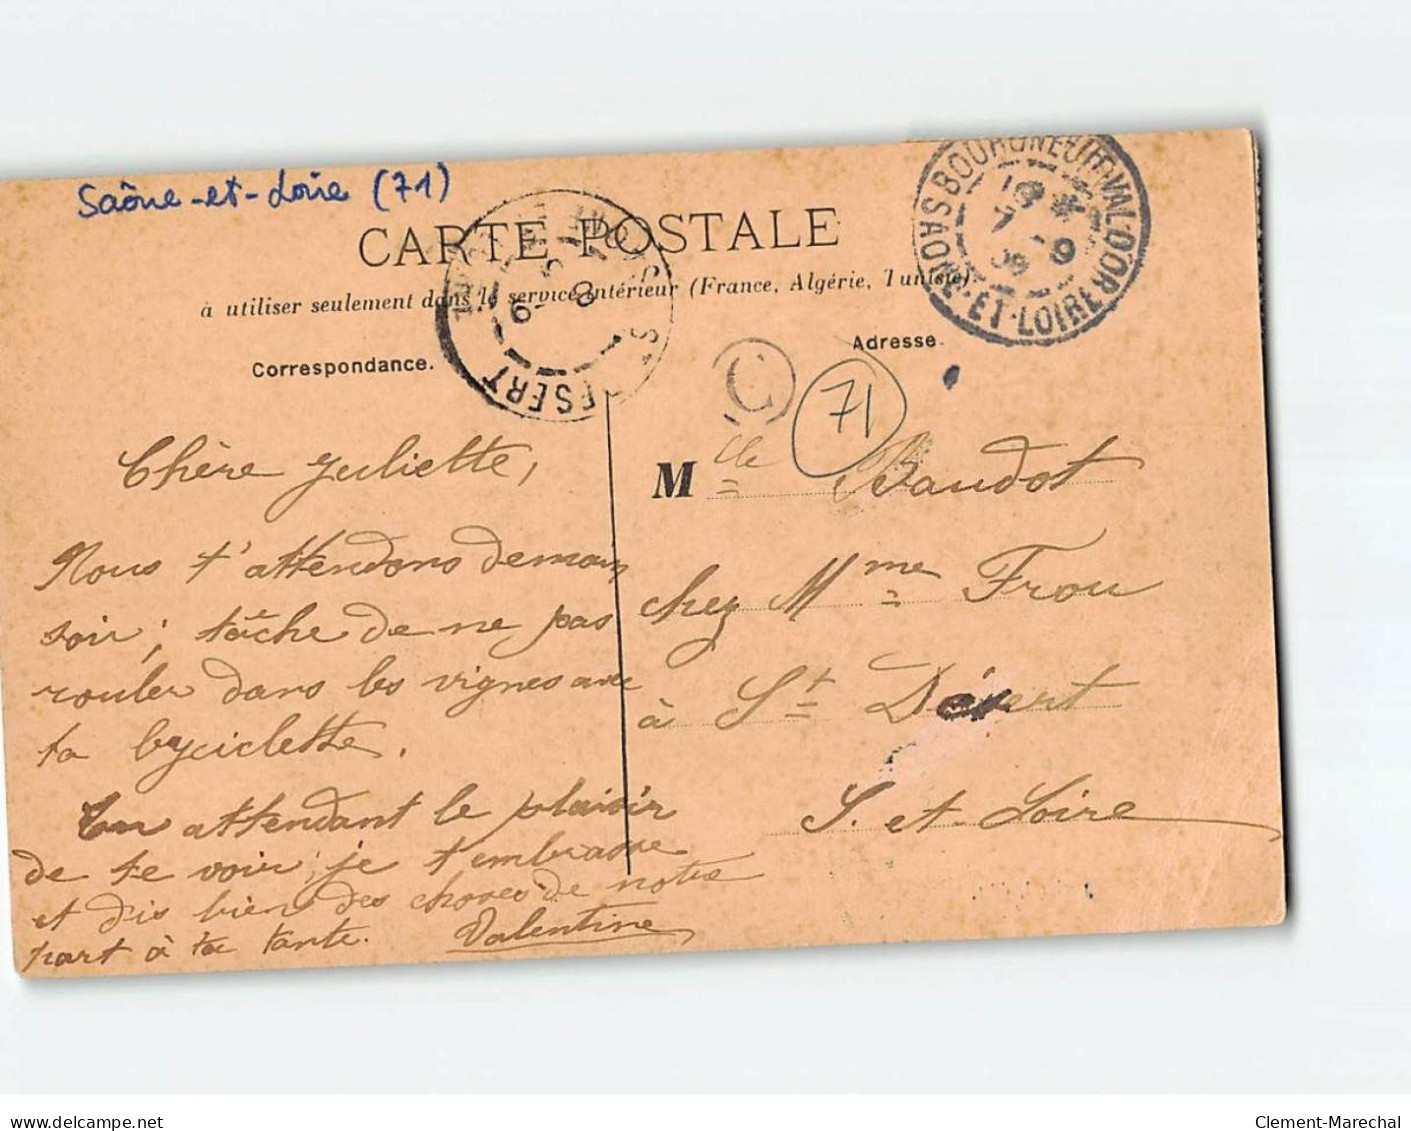 Saône-et-Loire (71)
CARTE POSTALE
à utiliser seulement dans le service intérieur (France, Algérie, Tunisie)
Correspondance.
Adresse
BOURGNEUF-VAL D'OR
SAONE-ET-LOIRE
7 -9
ST DESERT
C
71
Chère Juliette,
Nous t'attendons demain
soir; tâche de ne pas
rouler dans les vignes avec
ta byciclette.
En attendant le plaisir
de te voir, je t'embrasse
et dis bien des choses de notre
part à ta tante. Valentine
Mlle Baudot
chez Mme Frou
à St Désert
S. et Loire
www.delcampe.net
Clement-Marechal